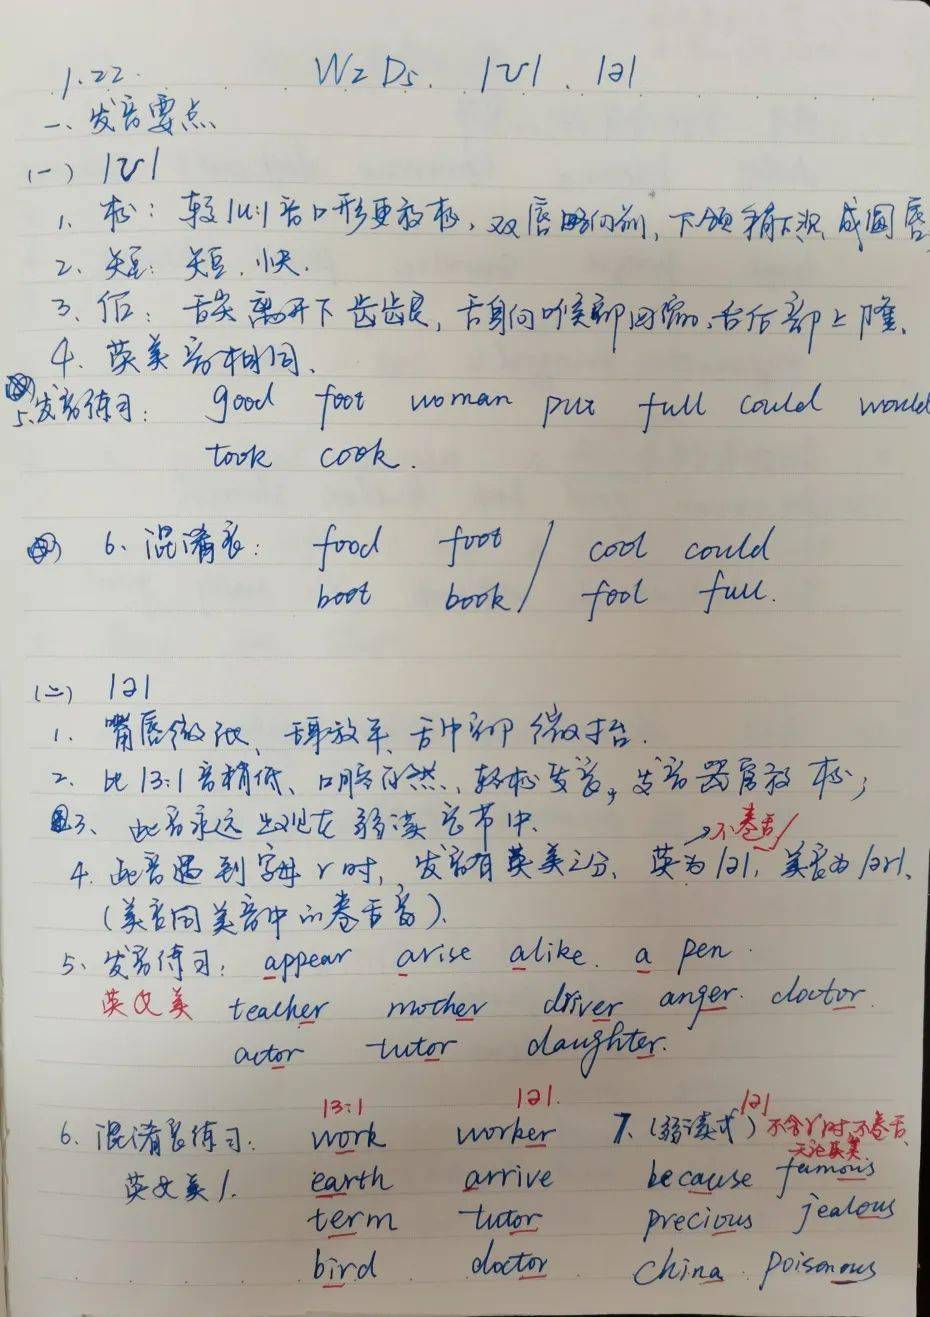 1.22. W2 D5. /ʊ/ . /ə/
一、发音要点
(一) /ʊ/
1. 松: 较/u:/音口形更放松, 双唇略向前, 下颌稍下沉, 成圆唇
2. 短: 短, 快.
3. 后: 舌尖离开下齿龈, 舌身向喉部回缩, 舌后部上隆.
4. 英美音相同.
5.发音练习: good foot woman put full could would
took cook.
6、混淆音: food foot / cool could
boot book / fool full.
(二) /ə/
1. 嘴唇微张、舌放平、舌中部微抬.
2. 比/ɜ:/音稍低、口腔自然、轻松发音, 发音器官放松;
3、此音永远出现在弱读音节中.
→不卷舌
4. 此音遇到字母r时, 发音有英美之分、英为/ə/, 美音为/ər/、
(美音同美音中的卷舌音).
5、发音练习: appear arise alike. a pen.
英文美 teacher mother driver anger. doctor.
actor tutor daughter.
/ɜ:/ /ə/. /ə/
6. 混淆音练习. work worker 7. (弱读式) 不含r时, 不卷舌、
无论英美.
英文美/. earth arrive because famous
term tutor precious jealous
bird doctor china poisonous